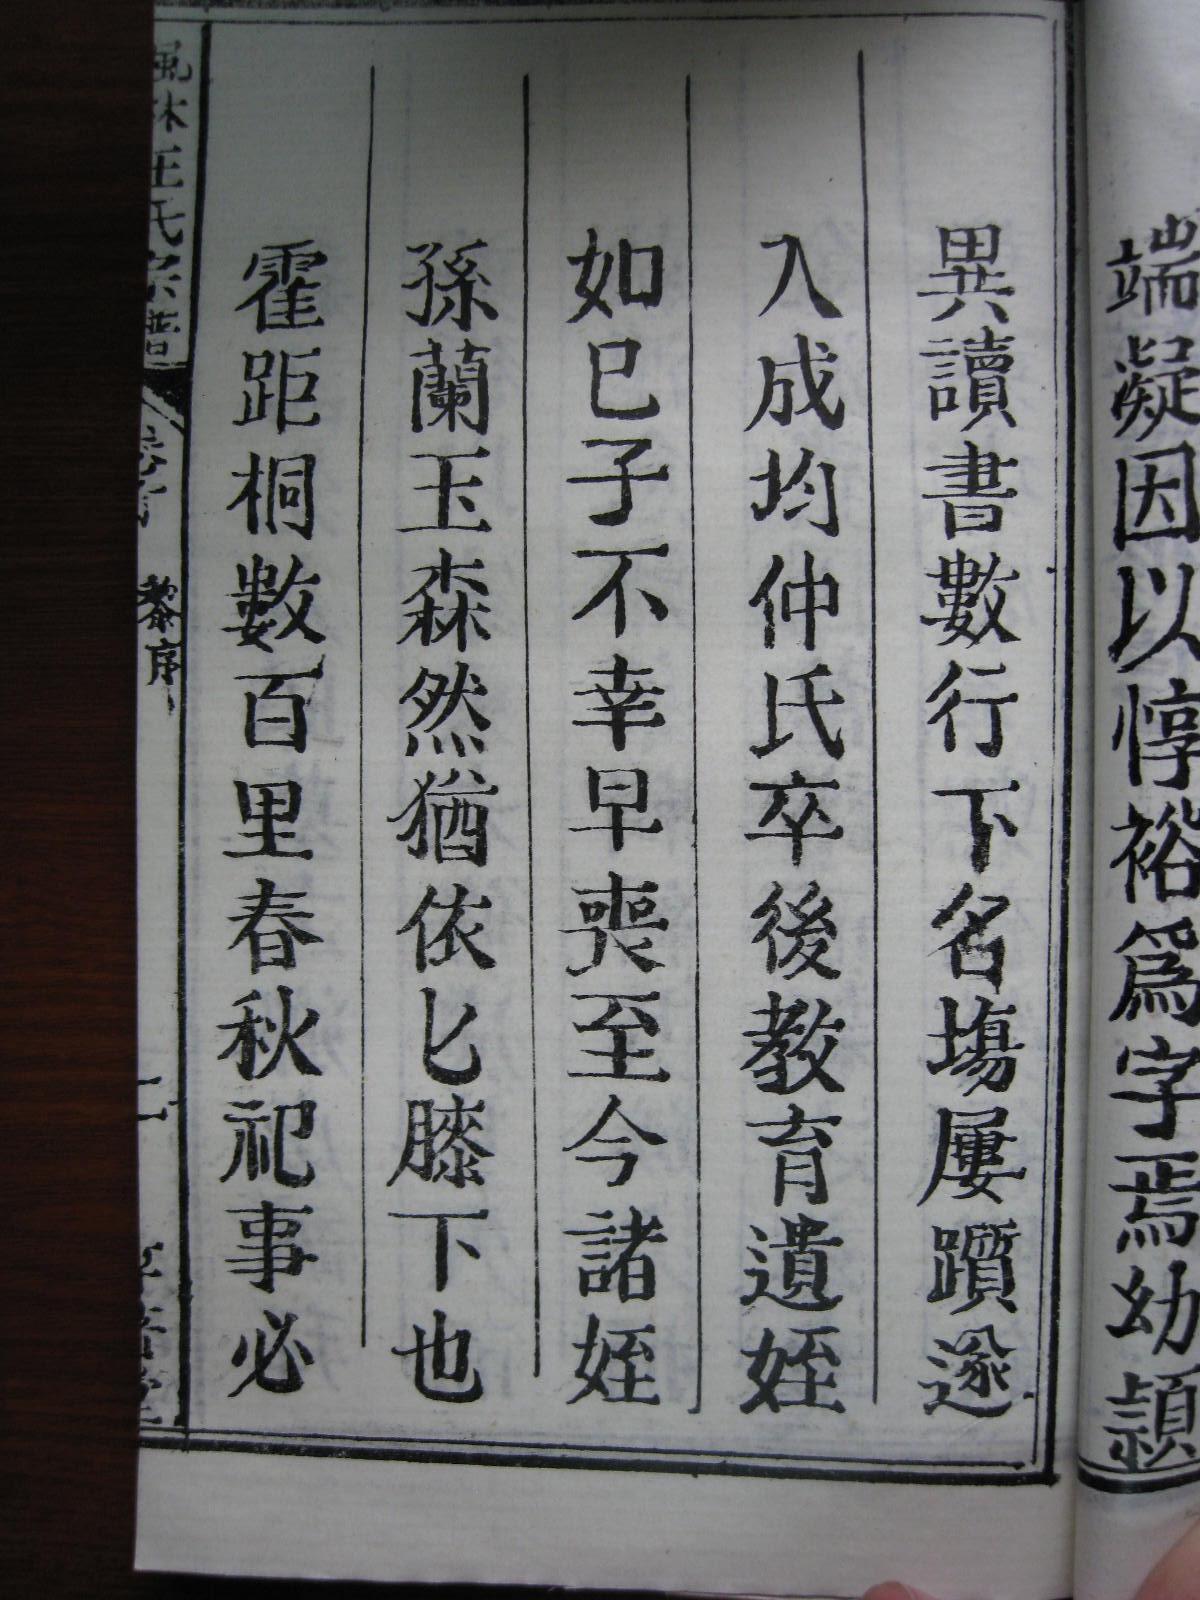 端凝因以惇裕爲字焉幼頴
異讀書數行下名塲屢躓遂
入成均仲氏卒後教育遺姪
如巳子不幸早喪至今諸姪
孫蘭玉森然猶依匕膝下也
霍距桐數百里春秋祀事必
風林王氏宗譜
黎序
二